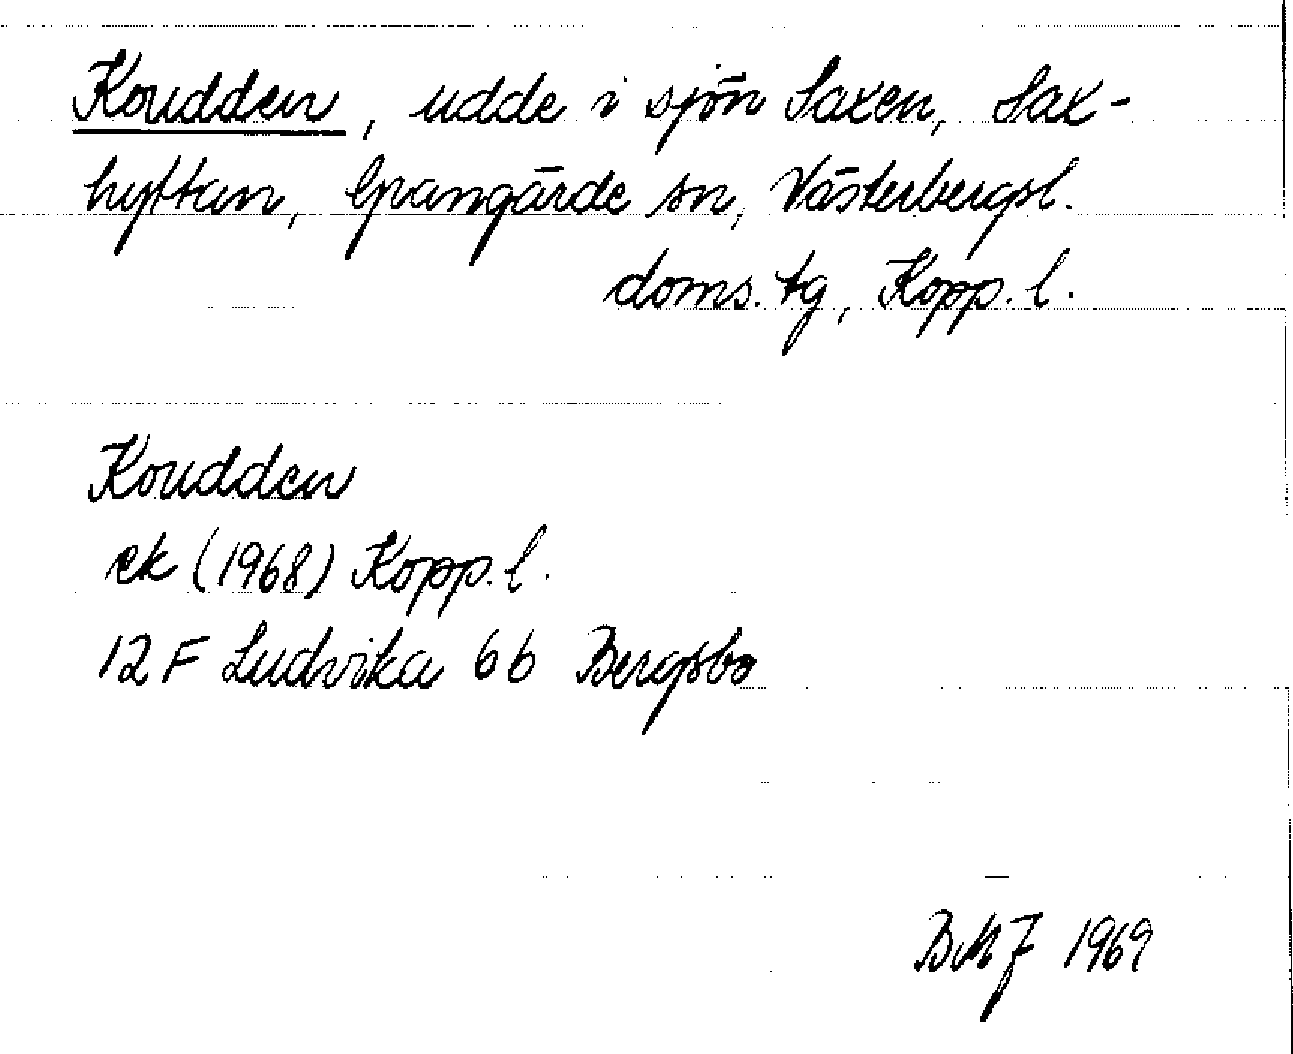 Koudden, udde i sjön Saxen, Sax-
hyttan, Grangärde sn, Västerbergsl.
doms. tg, Kopp. l.
Koudden
ek (1968) Kopp. l.
12 F Ludvika 6b Bergsbo
BMJ 1969